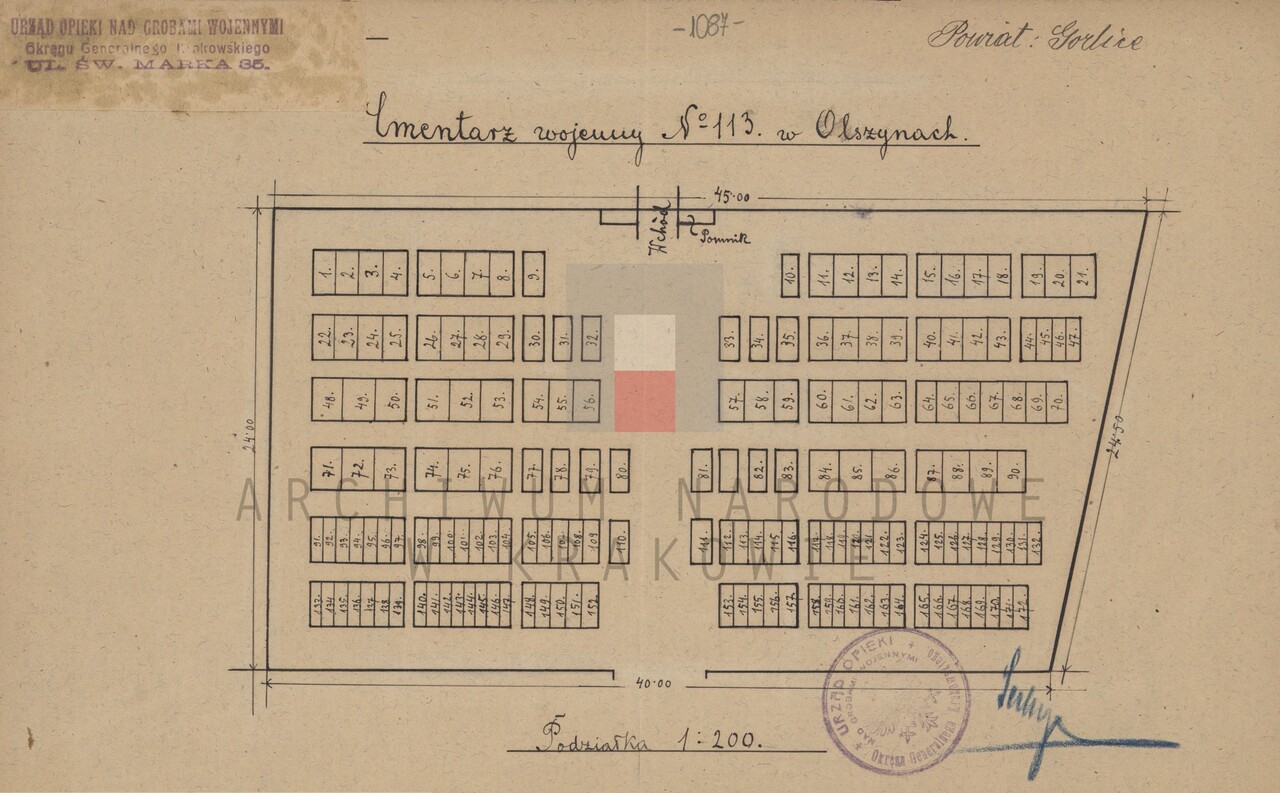 URZĄD OPIEKI NAD GROBAMI WOJENNYMI
Okręgu Generalnego Krakowskiego
UL. ŚW. MARKA 35.
-1087-
Powiat: Gorlice
Cmentarz wojenny Nº 113. w Olszynach.
45·00
Wchód
Pomnik
1. 2. 3. 4. 5. 6. 7. 8. 9. 10. 11. 12. 13. 14. 15. 16. 17. 18. 19. 20. 21.
22. 23. 24. 25. 26. 27. 28. 29. 30. 31. 32. 33. 34. 35. 36. 37. 38. 39. 40. 41. 42. 43. 44. 45. 46. 47.
48. 49. 50. 51. 52. 53. 54. 55. 56. 57. 58. 59. 60. 61. 62. 63. 64. 65. 66. 67. 68. 69. 70.
24·00
24·50
71. 72. 73. 74. 75. 76. 77. 78. 79. 80. 81. 82. 83. 84. 85. 86. 87. 88. 89. 90.
ARCHIWUM NARODOWE
91. 92. 93. 94. 95. 96. 97. 98. 99. 100. 101. 102. 103. 104. 105. 106. 107. 108. 109. 110. 111. 112. 113. 114. 115. 116. 117. 118. 119. 120. 121. 122. 123. 124. 125. 126. 127. 128. 129. 130. 131. 132.
W KRAKOWIE
133. 134. 135. 136. 137. 138. 139. 140. 141. 142. 143. 144. 145. 146. 147. 148. 149. 150. 151. 152. 153. 154. 155. 156. 157. 158. 159. 160. 161. 162. 163. 164. 165. 166. 167. 168. 169. 170. 171. 172.
40·00
URZĄD OPIEKI
NAD GROBAMI WOJENNYMI
Okręgu Generalnego Krakowskiego
Podziałka 1:200.